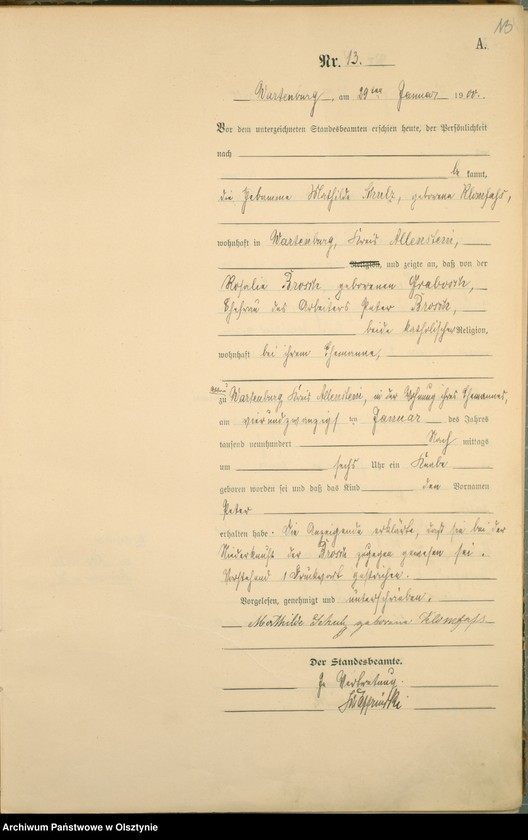 113
A.
Nr. 13.
Wartenburg, am 29ten Januar 1900.
Vor dem unterzeichneten Standesbeamten erschien heute, der Persönlichkeit
nach
be kannt,
die Hebamme Mathilde Schulz, geborene Klomfaß,
wohnhaft in Wartenburg, Kreis Allenstein,
Religion, und zeigte an, daß von der
Rosalie Brosch geborenen Grabosch,
Ehefrau des Arbeiters Peter Brosch,
beide katholischer Religion,
wohnhaft bei ihrem Ehemanne,
zu Wartenburg Kreis Allenstein, in der Wohnung ihres Ehemannes,
am vierundzwanzigsten Januar des Jahres
tausend neunhundert Nach mittags
um sechs Uhr ein Knabe
geboren worden sei und daß das Kind den Vornamen
Peter
erhalten habe. Die Anzeigende erklärte, daß sie bei der
Niederkunft der Brosch zugegen gewesen sei.
Vorstehend 1 Druckwort gestrichen.
Vorgelesen, genehmigt und unterschrieben.
Mathilde Schulz geborene Klomfass
Der Standesbeamte.
In Vertretung
Archiwum Państwowe w Olsztynie